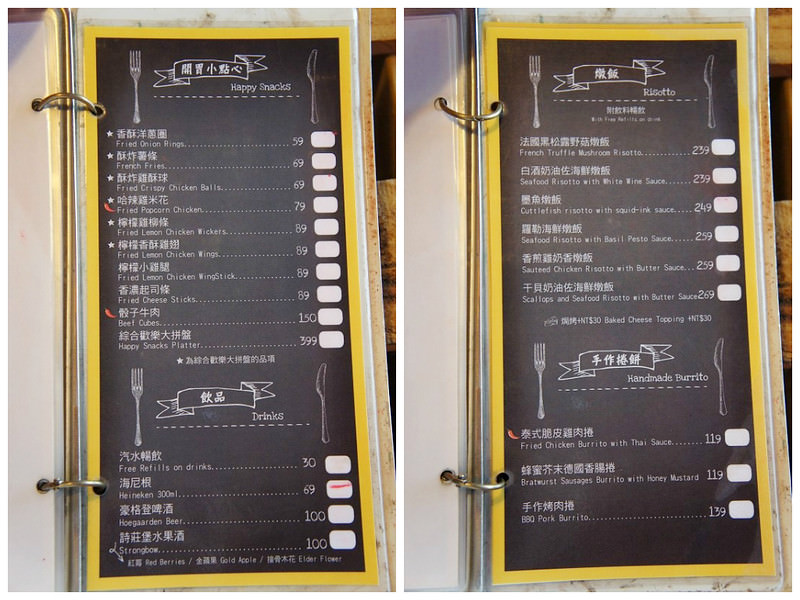 開胃小點心
Happy Snacks
★ 香酥洋蔥圈
Fried Onion Rings 59
★ 酥炸薯條
French Fries 69
★ 酥炸雞酥球
Fried Crispy Chicken Balls 69
★ 哈辣雞米花
Fried Popcorn Chicken 79
★ 檸檬雞柳條
Fried Lemon Chicken Wickers 89
★ 檸檬香酥雞翅
Fried Lemon Chicken Wings 89
檸檬小雞腿
Fried Lemon Chicken WingStick 89
香濃起司條
Fried Cheese Sticks 89
骰子牛肉
Beef Cubes 150
綜合歡樂大拼盤
Happy Snacks Platter 399
★為綜合歡樂大拼盤的品項
飲品
Drinks
汽水暢飲
Free Refills on drinks 30
海尼根
Heineken 300ml 69
豪格登啤酒
Hoegaarden Beer 100
詩莊堡水果酒
Strongbow 100
紅莓 Red Berries / 金蘋果 Gold Apple / 接骨木花 Elder Flower
燉飯
Risotto
附飲料暢飲
With Free Refills on drink
法國黑松露野菇燉飯
French Truffle Mushroom Risotto 239
白酒奶油佐海鮮燉飯
Seafood Risotto with White Wine Sauce 239
墨魚燉飯
Cuttlefish risotto with squid-ink sauce 249
羅勒海鮮燉飯
Seafood Risotto with Basil Pesto Sauce 259
香煎雞奶香燉飯
Sauteed Chicken Risotto with Butter Sauce 259
干貝奶油佐海鮮燉飯
Scallops and Seafood Risotto with Butter Sauce 269
焗烤+NT$30 Baked Cheese Topping +NT$30
手作捲餅
Handmade Burrito
泰式脆皮雞肉捲
Fried Chicken Burrito with Thai Sauce 119
蜂蜜芥末德國香腸捲
Bratwurst Sausages Burrito with Honey Mustard 119
手作烤肉捲
BBQ Pork Burrito 139